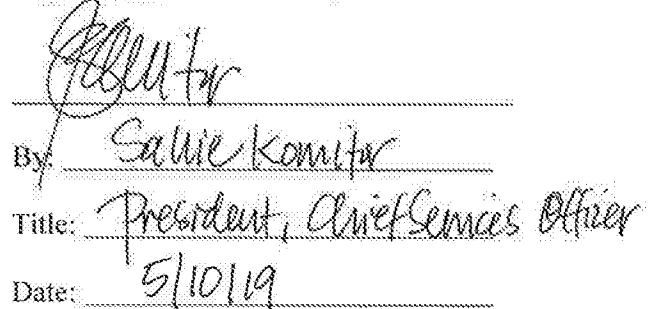 By: Sallie Komitor
Title: President, Chief Services Officer
Date: 5/10/19